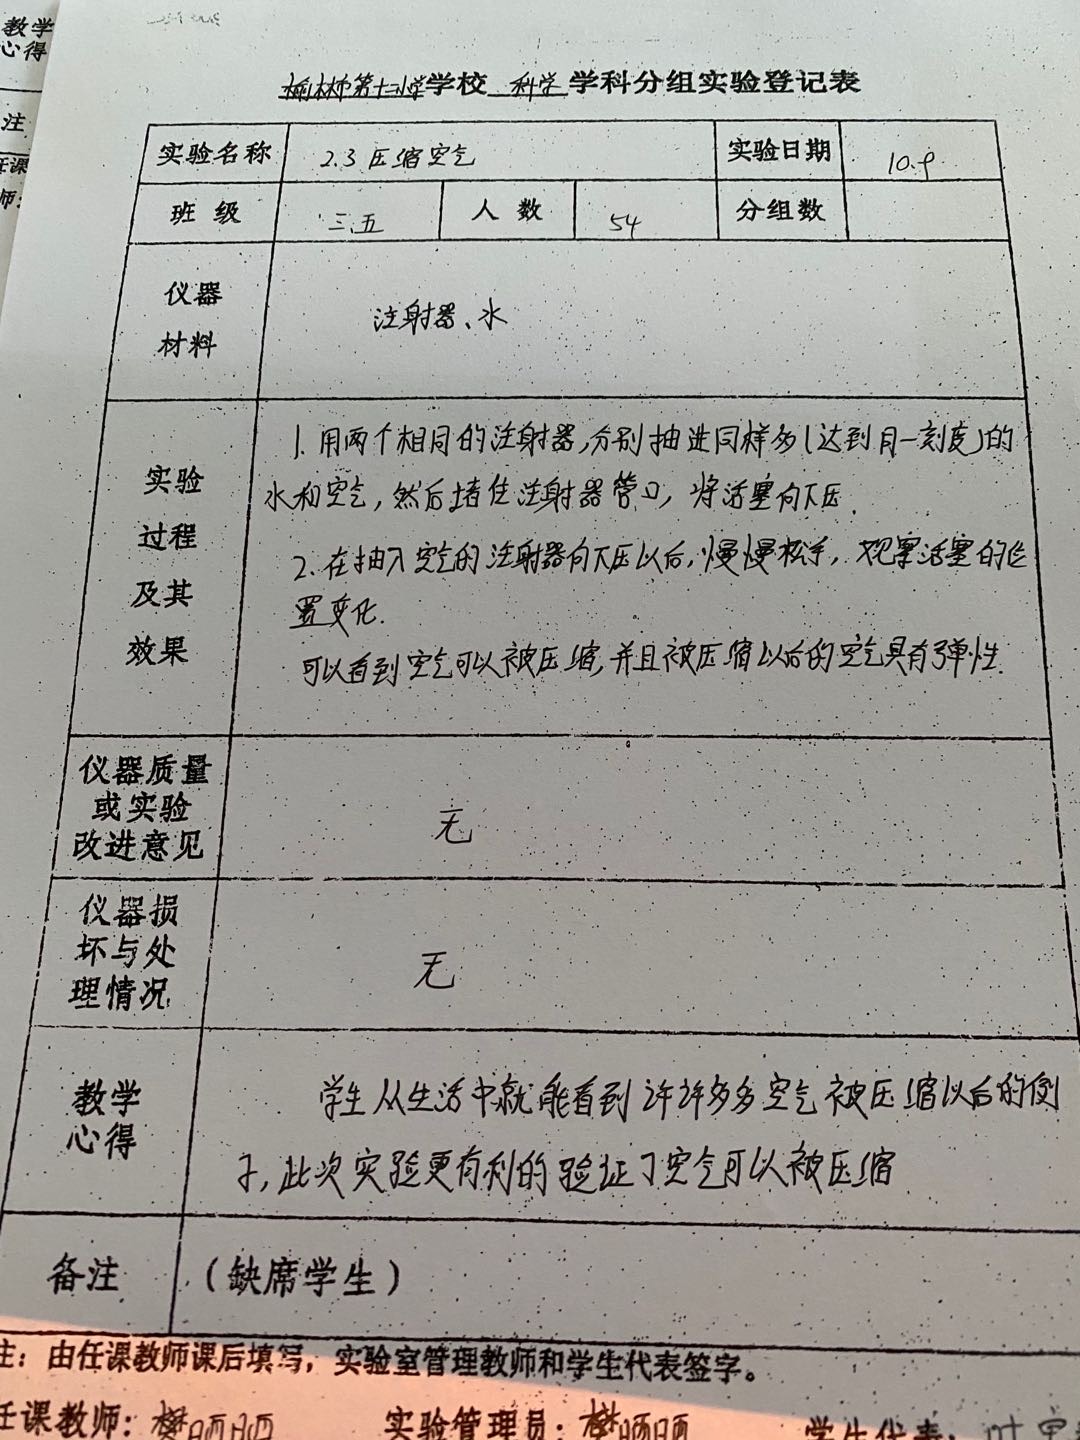 教学
心得
注
榆林市第十二小学学校 科学 学科分组实验登记表
实验名称 2.3 压缩空气 实验日期 10.9
班级 三.五 人数 54 分组数
仪器
材料
注射器、水
实验
过程
及其
效果
1. 用两个相同的注射器,分别抽进同样多(达到同一刻度)的
水和空气,然后堵住注射器管口,将活塞向下压.
2. 在抽入空气的注射器向下压以后,慢慢松手,观察活塞的位
置变化.
可以看到空气可以被压缩,并且被压缩以后的空气具有弹性.
仪器质量
或实验
改进意见
无
仪器损
坏与处
理情况
无
教学
心得
学生从生活中就能看到许许多多空气被压缩以后的例
子,此次实验更有利的验证了空气可以被压缩
备注 (缺席学生)
注：由任课教师课后填写，实验室管理教师和学生代表签字。
任课教师: 樊丽丽 实验管理员: 樊丽丽 学生代表: 叶